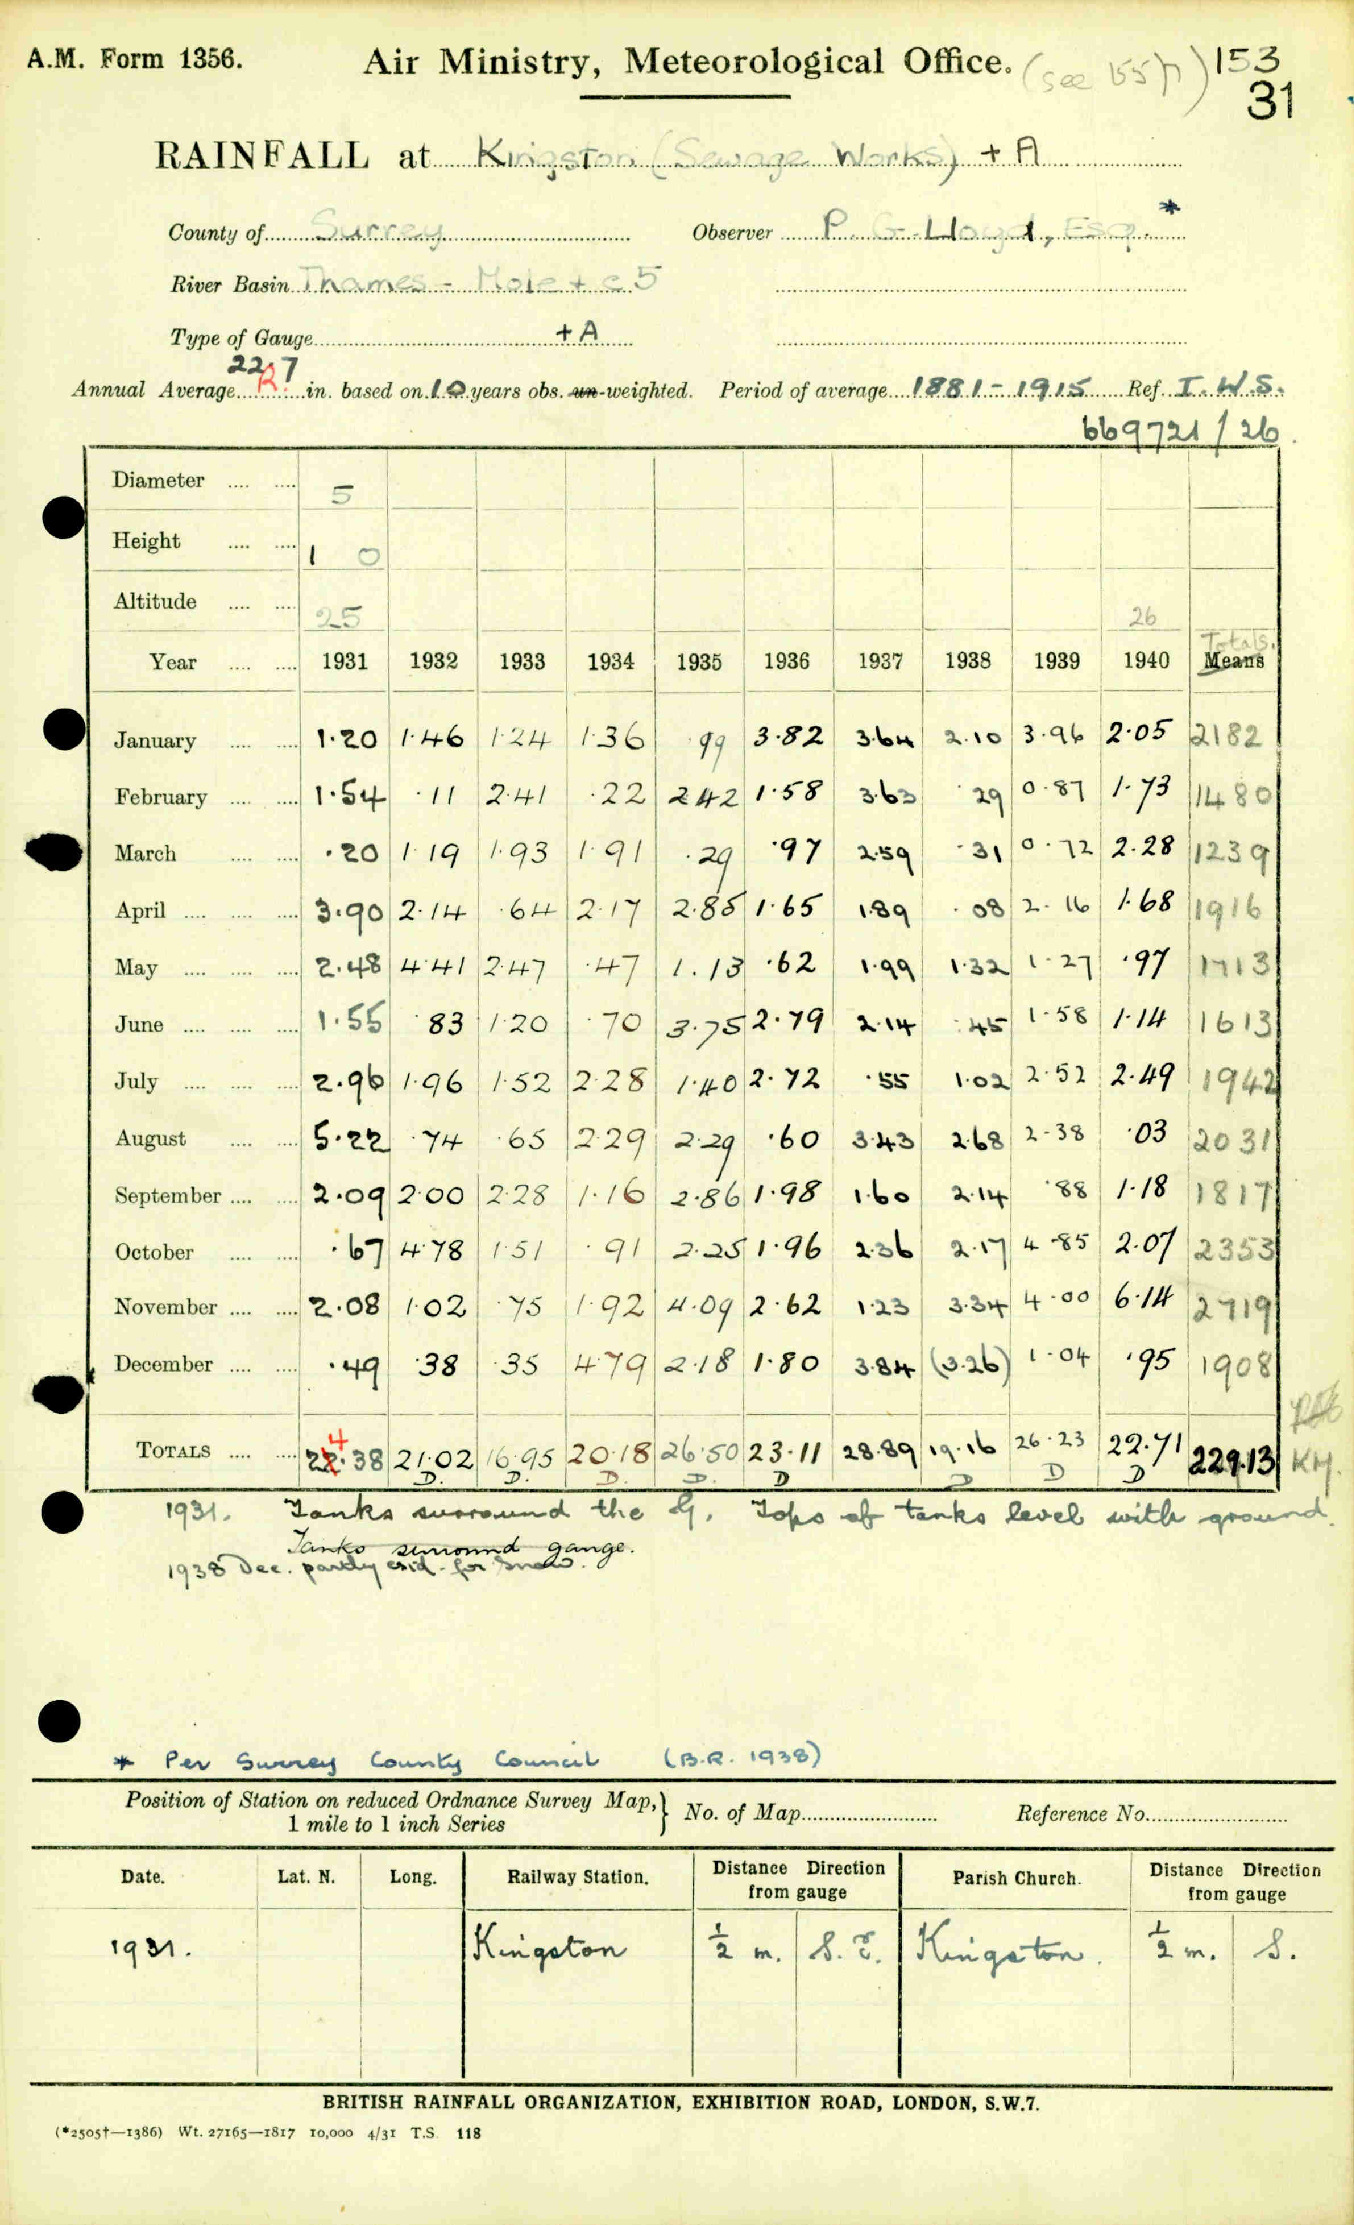 A.M. Form 1356. Air Ministry, Meteorological Office. (see 155/7) 153
31
RAINFALL at Kingston (Sewage Works) + A
County of Surrey Observer P. G. Lloyd, Esq. *
River Basin Thames - Mole + c 5
Type of Gauge + A
Annual Average 22.7 R. in. based on 10 years obs. un-weighted. Period of average 1881-1915 Ref. I.W.S.
669721/26
Diameter 5
Height 1 0
Altitude 25 26
Totals.
Year 1931 1932 1933 1934 1935 1936 1937 1938 1939 1940 Means
January 1.20 1.46 1.24 1.36 .99 3.82 3.64 2.10 3.96 2.05 2182
February 1.54 .11 2.41 .22 2.42 1.58 3.63 .29 0.87 1.73 1480
March .20 1.19 1.93 1.91 .29 .97 2.59 .31 0.72 2.28 1239
April 3.90 2.14 .64 2.17 2.85 1.65 1.89 .08 2.16 1.68 1916
May 2.48 4.41 2.47 .47 1.13 .62 1.99 1.32 1.27 .97 1713
June 1.55 .83 1.20 .70 3.75 2.79 2.14 .45 1.58 1.14 1613
July 2.96 1.96 1.52 2.28 1.40 2.72 .55 1.02 2.52 2.49 1942
August 5.22 .74 .65 2.29 2.29 .60 3.43 2.68 2.38 .03 2031
September 2.09 2.00 2.28 1.16 2.86 1.98 1.60 2.14 .88 1.18 1817
October .67 4.78 1.51 .91 2.25 1.96 2.36 2.17 4.85 2.07 2353
November 2.08 1.02 .75 1.92 4.09 2.62 1.23 3.34 4.00 6.14 2719
December .49 .38 .35 4.79 2.18 1.80 3.84 (3.26) 1.04 .95 1908
4
TOTALS 22.38 21.02 16.95 20.18 26.50 23.11 28.89 19.16 26.23 22.71 229.13 KM.
D. D. D. D. D D D D
1931. Tanks surround the G. Tops of tanks level with ground.
Tanks surround gauge.
1938 Dec. partly esid. for snow.
* Per Surrey County Council (B.R. 1938)
Position of Station on reduced Ordnance Survey Map, } No. of Map Reference No.
1 mile to 1 inch Series
Date. Lat. N. Long. Railway Station. Distance Direction from gauge Parish Church. Distance Direction from gauge
1931. Kingston ½ m. S.E. Kingston. ½ m. S.
BRITISH RAINFALL ORGANIZATION, EXHIBITION ROAD, LONDON, S.W.7.
(*2505†—1386) Wt. 27165—1817 10,000 4/31 T.S. 118